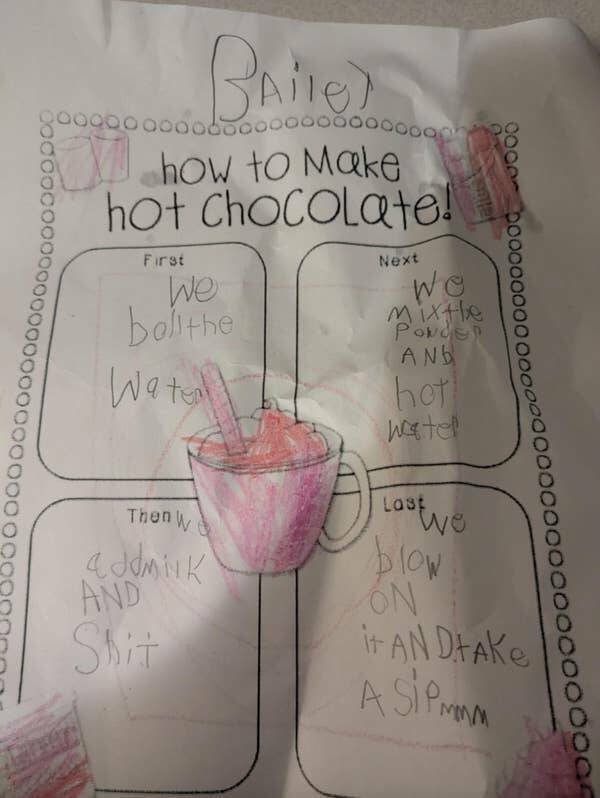 BAiley
how to Make
hot CHOCOLate!
First
We
boil the
Water
Next
We
Mix the
PowdeR
AND
hot
water
Then We
add milk
AND
Shit
Last We
blow
ON
it AND tAKe
A SiPmmm